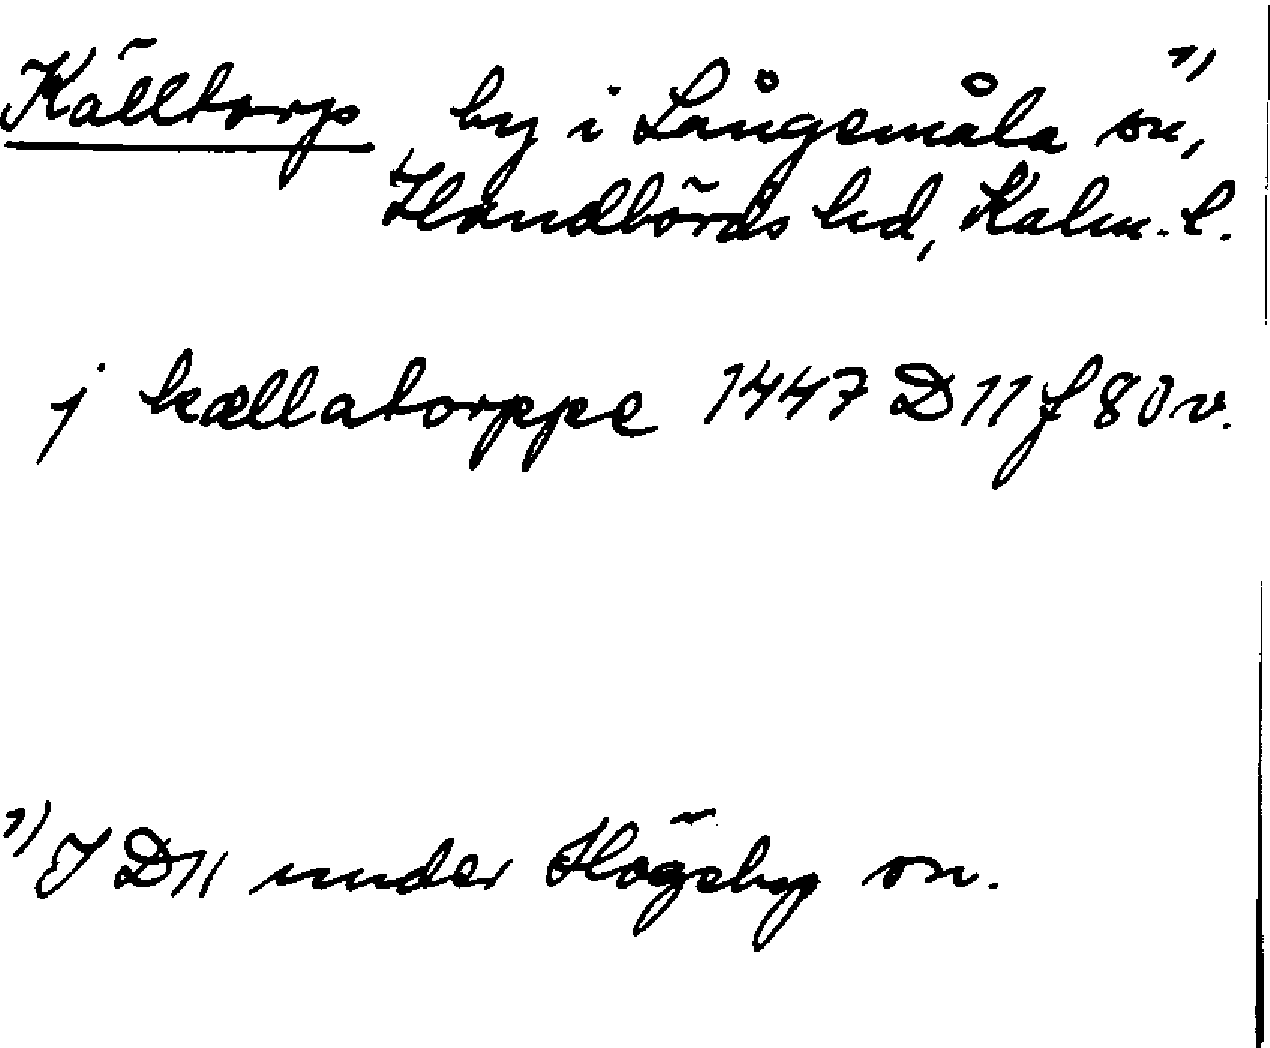 Källtorp by i Långemåla sn, 1)
Handbörds hd, Kalm. l.
j kællatorppe 1447 D 11 f 80 v.
1) I D 11 under Högsby sn.